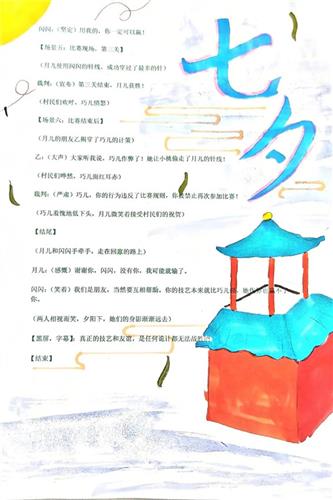 七夕
闪闪：（坚定）用我的，你一定可以赢！
【场景五：比赛现场，第三关】
（月儿使用闪闪的针线，成功穿过了最来的针）
裁判：（宣布）第三关结束，月儿获胜！
（村民们欢呼，巧儿愤怒）
【场景六：比赛结束后】
（月儿的朋友乙揭穿了巧儿的计策）
乙：（大声）大家听我说，巧儿作弊了！她让小桃偷走了月儿的针线！
（村民们哗然，巧儿面红耳赤）
裁判：（严肃）巧儿，你的行为违反了比赛规则，你被禁止再次参加比赛！
（巧儿羞愧地低下头，月儿微笑着接受村民们的祝贺）
【结尾】
（月儿和闪闪手牵手，走在回意的路上）
月儿：（感慨）谢谢你，闪闪，没有你，我可能就输了。
闪闪：（笑着）我们是朋友，当然要互相帮助，你的技艺本来就比巧儿
你。
（两人相视而笑，夕阳下，她们的身影渐渐远去）
【黑屏，字幕】：真正的技艺和友谊，是任何诡计都无法战
【结束】